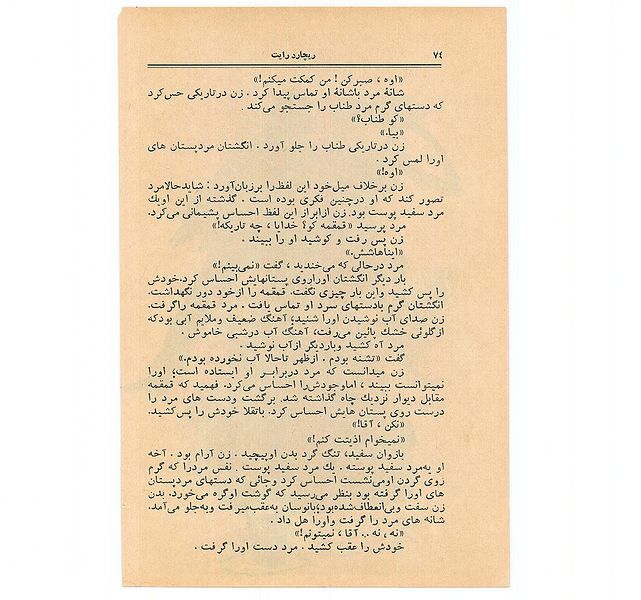 ۷۴
ریچارد رایت
«اوه ، صبر کن ! من کمکت میکنم!»
شانهٔ مرد باشانهٔ او تماس پیدا کرد . زن درتاریکی حس‌کرد
که دستهای گرم مرد طناب را جستجو می‌کند .
«کو طناب؟»
«بیا.»
زن درتاریکی طناب را جلو آورد . انگشتان مردپستان های
اورا لمس کرد .
«اوه!»
زن برخلاف میل‌خود این لفظ‌را برزبان‌آورد : شایدحالامرد
تصور کند که او درچنین فکری بوده است . گذشته از این اویك
مرد سفید پوست بود. زن ازابراز این لفظ احساس پشیمانی می‌کرد.
مرد پرسید «قمقمه کو؟ خدایا ، چه تاریکه!»
زن پس رفت و کوشید او را ببیند .
«ایناهاشش.»
مرد درحالی که می‌خندید ، گفت «نمی‌بینم!»
بار دیگر انگشتان اوراروی پستانهایش احساس کرد.خودش
را پس کشید واین بار چیزی نگفت. قمقمه را ازخود دور نگهداشت.
انگشتان گرم بادستهای سرد او تماس یافت . مرد قمقمه راگرفت.
زن صدای آب نوشیدن اورا شنید؛ آهنگ ضعیف وملایم آبی بودکه
ازگلوئی خشك پائین می‌رفت، آهنگ آب درشبی خاموش .
مرد آه کشید وباردیگر ازآب نوشید .
گفت «تشنه بودم . ازظهر تاحالا آب نخورده بودم.»
زن میدانست که مرد دربرابر او ایستاده است؛ اورا
نمیتوانست ببیند ، اماوجودش‌را احساس می‌کرد. فهمید که قمقمه
مقابل دیوار نزدیك چاه گذاشته شد. برگشت ودست های مرد را
درست روی پستان هایش احساس کرد. باتقلا خودش را پس‌کشید.
«نکن ، آقا!»
«نمیخوام اذیتت کنم!»
بازوان سفید، تنگ گرد بدن اوپیچید . زن آرام بود . آخه
او یه‌مرد سفید پوسته . یك مرد سفید پوست . نفس مردرا که گرم
روی گردن اومی‌نشست احساس کرد وجائی که دستهای مردپستان
های اورا گرفته بود بنظر می‌رسید که گوشت اوگره می‌خورد. بدن
زن سفت وبی‌انعطاف‌شده‌بود؛بانوسان به‌عقب‌میرفت وبه‌جلو می‌آمد.
شانه های مرد را گرفت واورا هل داد .
«نه ، نه .. آقا ، نمیتونم!»
خودش را عقب کشید . مرد دست اورا گرفت .